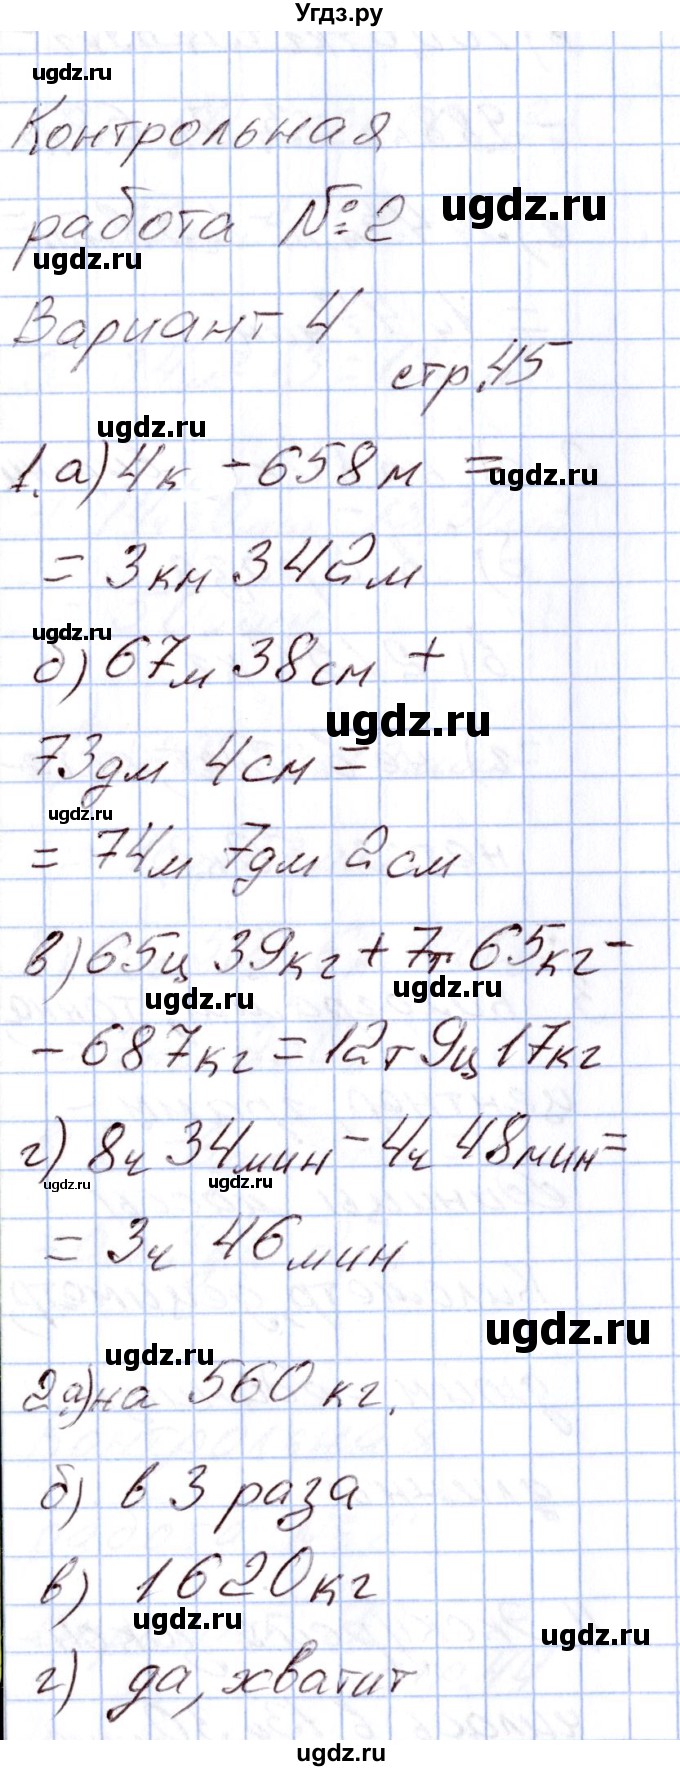 Угдз.ру
ugdz.ru
Контрольная
работа №2
ugdz.ru
ugdz.ru
Вариант 4
стр.45
ugdz.ru
1.а) 4к - 658м =
ugdz.ru
= 3км 342м
ugdz.ru
б) 67м 38см +
ugdz.ru
73дм 4см =
ugdz.ru
= 74м 7дм 2см
в) 65ц 39кг + 7т 65кг -
ugdz.ru
ugdz.ru
- 687кг = 12т 9ц 17кг
г) 8ч 34мин - 4ч 48мин =
ugdz.ru
ugdz.ru
= 3ч 46мин
ugdz.ru
ugdz.ru
2.а) на 560 кг.
б) в 3 раза
в) 1620кг
ugdz.ru
ugdz.ru
г) да, хватит
ugdz.ru